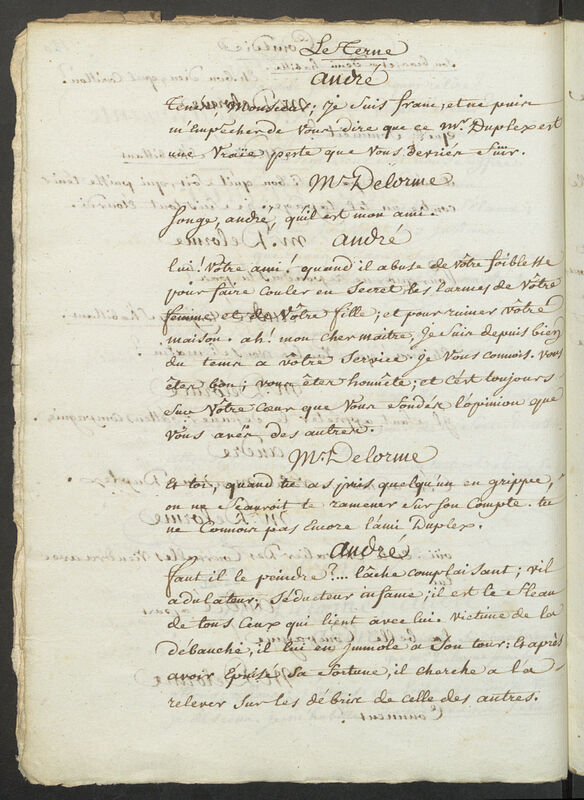 Le Terne
andré
Tenés, monsieur: je suis franc, et ne puis
m'Empêcher de Vous dire que ce Mr. Duplex est
une Vraïe peste que Vous Devriés fuir.
Mr. Delorme
songe, andré, qu'il est mon ami.
andré
lui! Vôtre ami! quand il abuse de vôtre foiblesse
pour faire couler en secret les larmes de Vôtre
femme, et de Vôtre fille, et pour ruiner vôtre
maison. ah! mon cher maitre, je suis depuis bien
du tems a vôtre service. je Vous connois. vous
êtes bon; vous êtes honnête; et c'est toujours
sur Vôtre Cœur que Vous fondés l'opinion que
Vous avés des autres.
Mr. Delorme
Et toi, quand tu as pris quelqu'un en grippe,
on ne sçauroit te ramener sur son Compte. tu
ne Connois pas Encore l'ami Duplex.
andré
faut il le peindre?... lâche complaisant; vil
adulateur; séducteur infame; il est le fleau
de tous Ceux qui lient avec lui. victime de la
débauche, il lui en jmmole a son tour: Et après
avoir Epuisé sa fortune, il cherche a l'a
relever sur les débris de celle des autres.
Comment